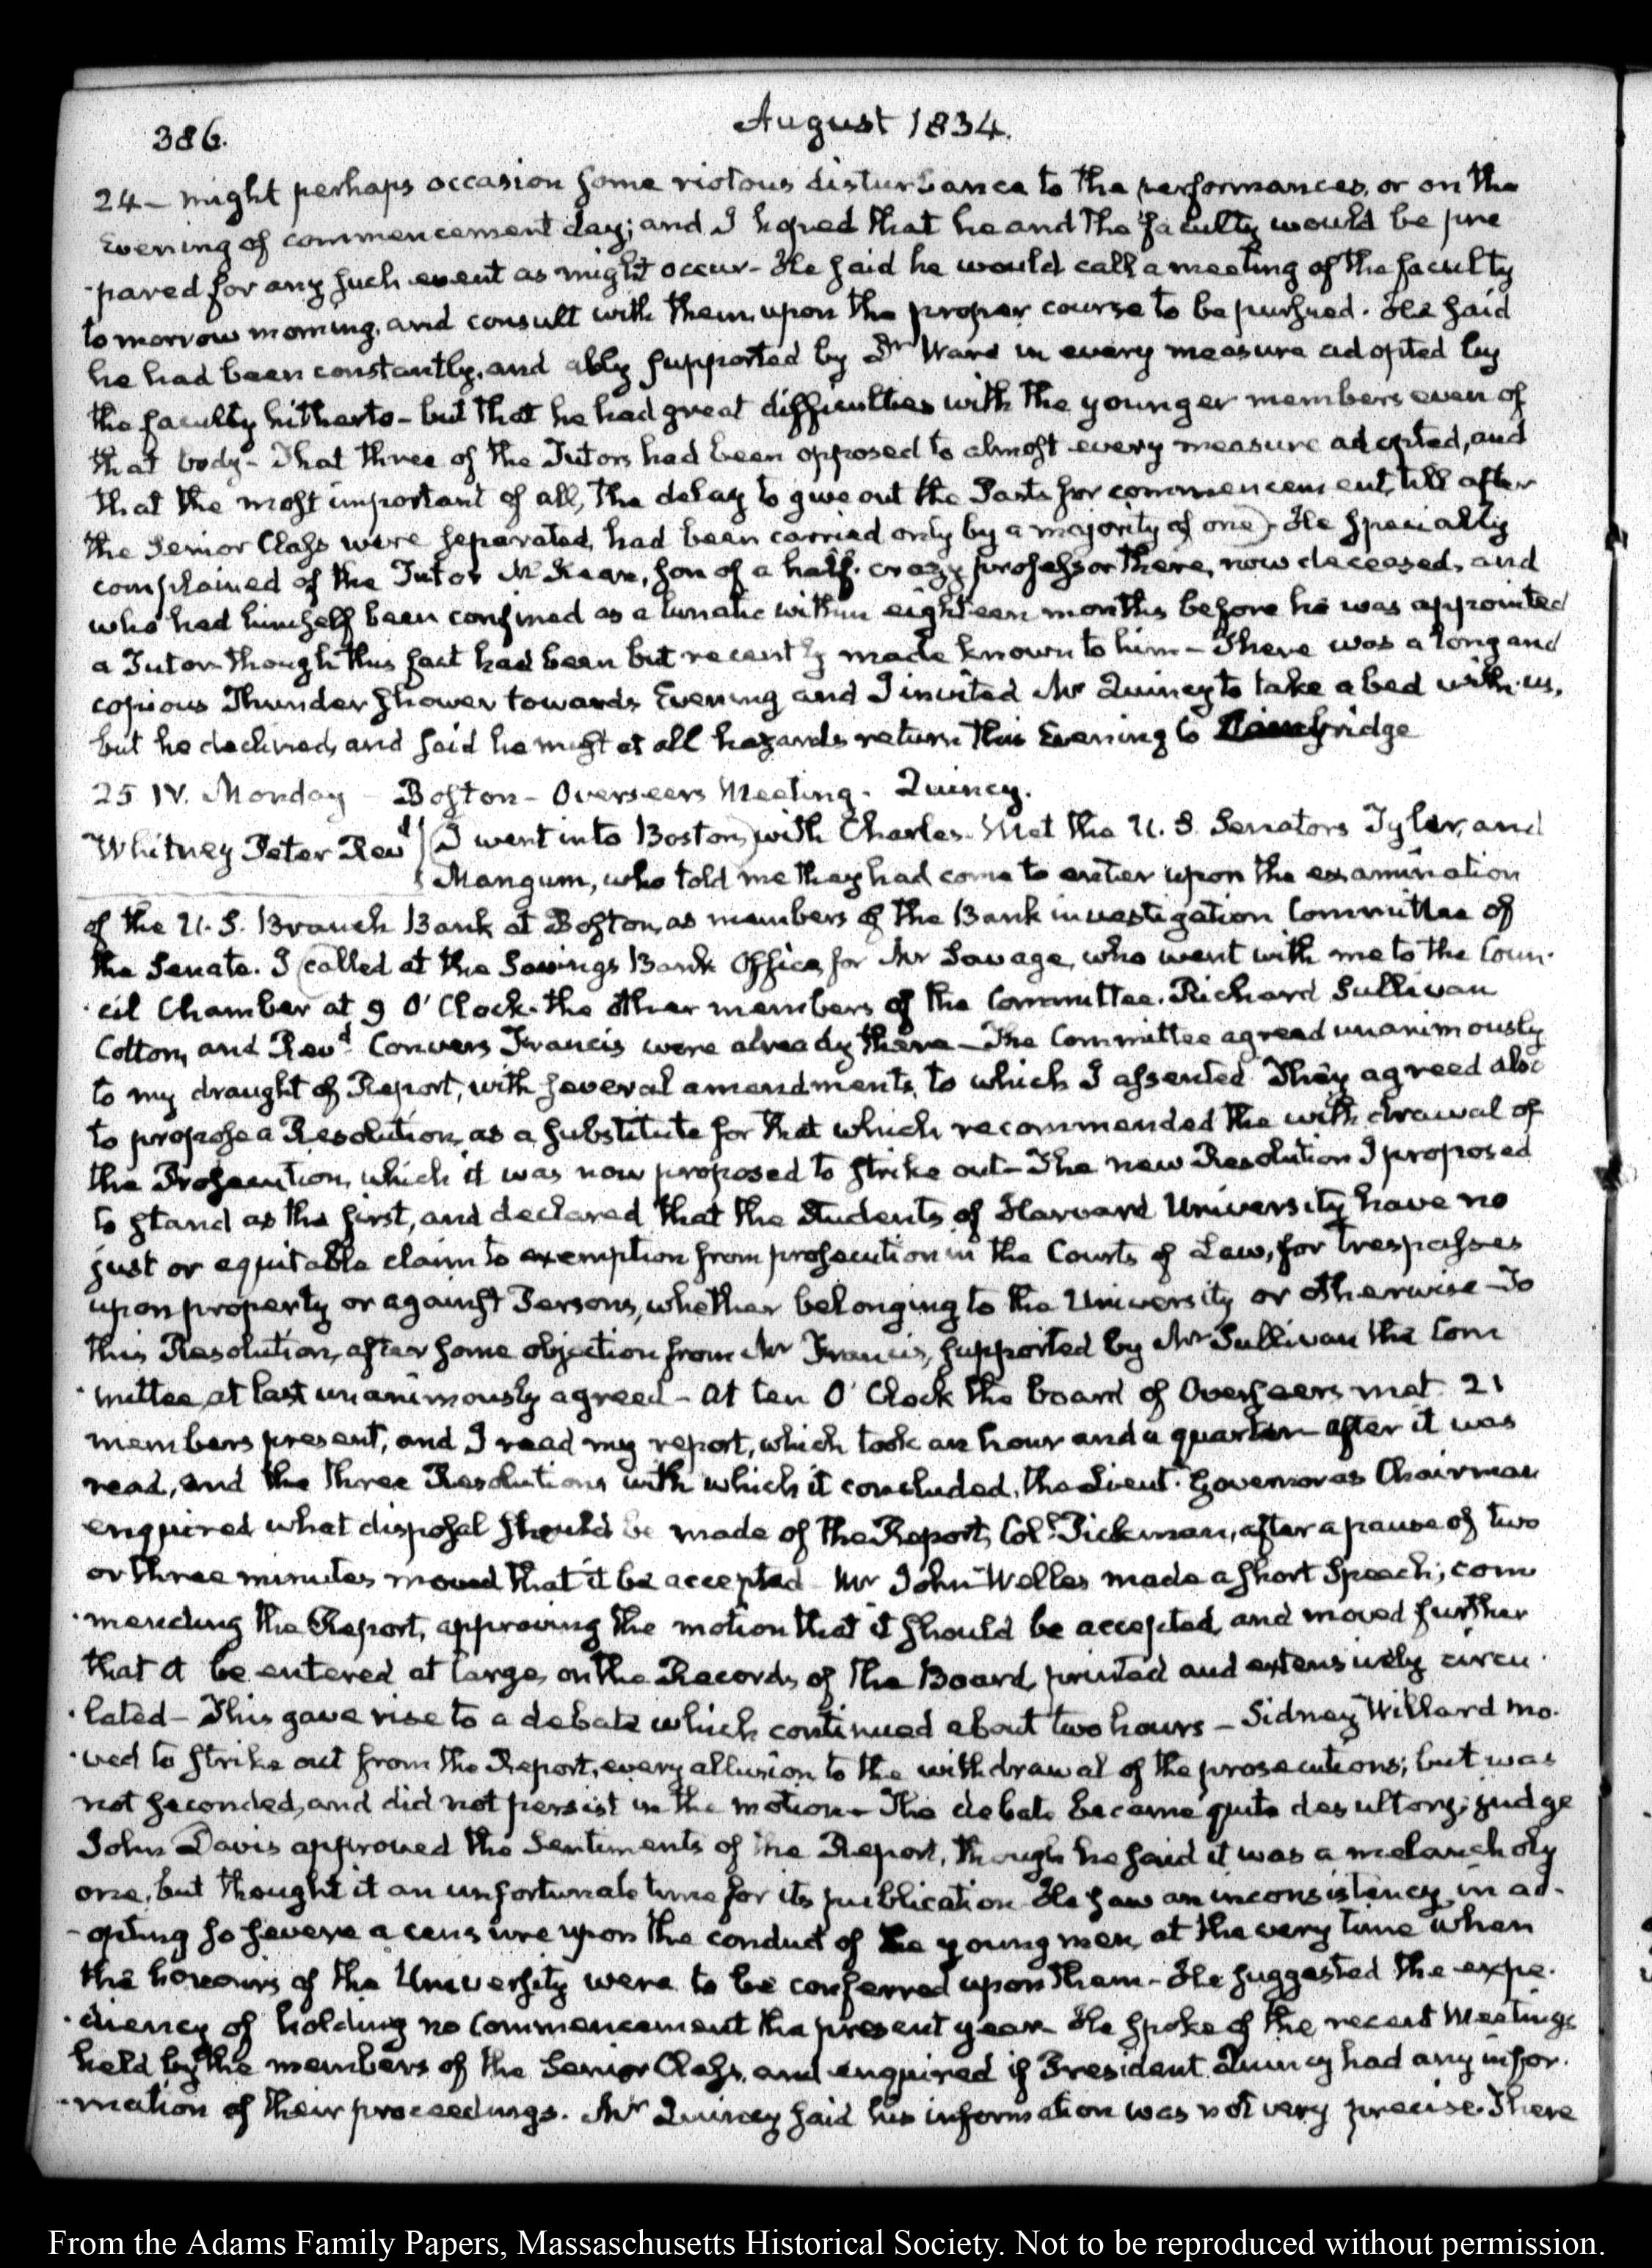 386.
August 1834.
24 - might perhaps occasion some riotous disturbance to the performances, or on the
Evening of commencement day; and I hoped that he and the faculty would be pre
-pared for any such event as might occur - He said he would call a meeting of the faculty
to morrow morning, and consult with them, upon the proper course to be pursued. He said
he had been constantly, and ably supported by Dr Ware in every measure adopted by
the faculty hitherto - but that he had great difficulties with the younger members even of
that body - That three of the Tutors had been opposed to almost every measure adopted, and
that the most important of all, the delay to give out the Parts for commencement, till after
the Senior Class were separated, had been carried only by a majority of one - He specially
complained of the Tutor McKean, son of a half-crazy professor there, now deceased, and
who had himself been confined as a lunatic within eighteen months before he was appointed
a Tutor though this fact had been but recently made known to him - There was a long and
copious Thunder shower towards Evening and I invited Mr Quincy to take a bed with us,
but he declined, and said he must at all hazards return this Evening to Cambridge
25 IV. Monday - Boston - Overseers Meeting - Quincy.
Whitney Peter Revd
I went into Boston with Charles. Met the U. S. Senators Tyler, and
Mangum, who told me they had come to enter upon the examination
of the U. S. Branch Bank at Boston, as members of the Bank investigation Committee of
the Senate. I called at the Savings Bank Office for Mr Savage, who went with me to the Coun-
-cil Chamber at 9 O'Clock. the other members of the Committee. Richard Sullivan
Cotton, and Revd Convers Francis were already there - The Committee agreed unanimously
to my draught of Report, with several amendments, to which I assented They agreed also
to propose a Resolution, as a substitute for that which recommended the withdrawal of
the Prosecution, which it was now proposed to strike out - The new Resolution I proposed
to stand as the first, and declared that the Students of Harvard University have no
just or equitable claim to exemption from prosecution in the Courts of Law, for trespasses
upon property or against Persons, whether belonging to the University or otherwise - To
this Resolution, after some objection from Mr Francis, supported by Mr Sullivan the Com
-mittee at last unanimously agreed - At ten O'Clock the board of Overseers met. 21
members present, and I read my report, which took an hour and a quarter - after it was
read, and the three Resolutions with which it concluded, the Lieut. Governor as Chairman
enquired what disposal should be made of the Report, Coll. Pickman, after a pause of two
or three minutes moved that it be accepted Mr John Welles made a short Speech; com
-mending the Report, approving the motion that it should be accepted, and moved further
that it be entered at large, on the Records of the Board, printed and extensively circu-
-lated - This gave rise to a debate which continued about two hours - Sidney Willard mo-
-ved to strike out from the Report, every allusion to the withdrawal of the prosecutions; but was
not seconded, and did not persist in the motion - The debate became quite desultory; judge
John Davis approved the Sentiments of the Report, though he said it was a melancholy
one, but thought it an unfortunate time for its publication He saw an inconsistency in ad-
-opting so severe a censure upon the conduct of the young men, at the very time when
the honours of the University were to be conferred upon them - He suggested the expe-
-diency of holding no Commencement the present year - He spoke of the recent Meetings
held by the members of the Senior Class, and enquired if President Quincy had any infor-
-mation of their proceedings. Mr Quincy said his information was not very precise. There
From the Adams Family Papers, Massachusetts Historical Society. Not to be reproduced without permission.